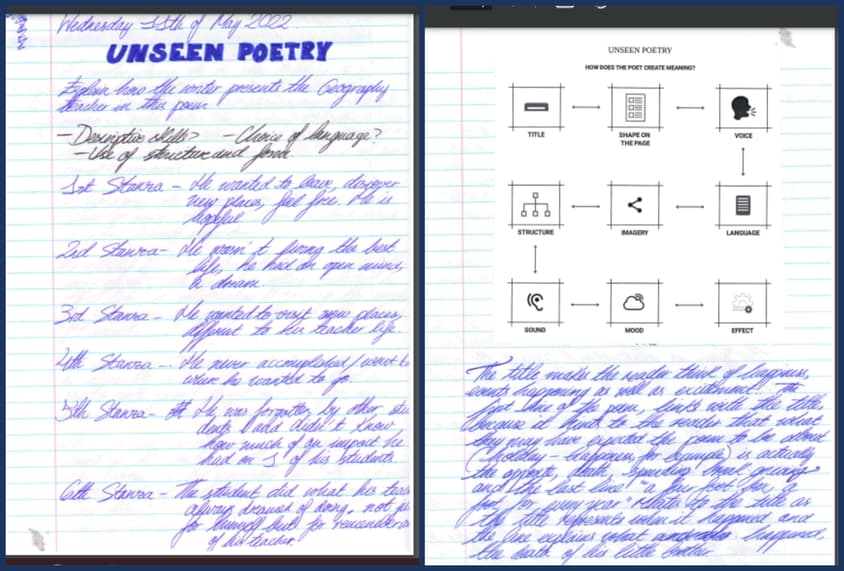 Wednesday 11th of May 2022
UNSEEN POETRY
Explain how the writer presents the Geography
teacher in this poem
- Descriptive skills? - Choice of language?
- Use of structure and form
1st Stanza - He wanted to leave, discover
new places, feel free. He is
hopeful
2nd Stanza - He wasn't living the best
life, he had an open mind,
a dream
3rd Stanza - He wanted to visit new places,
different to his teacher life
4th Stanza - He never accomplished / went
where he wanted to go.
5th Stanza - He was forgotten by other stu
dents and didn't know
how much of an impact he
had on 1 of his students.
6th Stanza - The student did what his teac
always dreamed of doing, not ju
for himself but for remembera
of his teacher.
UNSEEN POETRY
HOW DOES THE POET CREATE MEANING?
TITLE
SHAPE ON THE PAGE
VOICE
STRUCTURE
IMAGERY
LANGUAGE
SOUND
MOOD
EFFECT
The title makes the reader think of happiness,
events happening as well as excitement. The
first line of the poem, links with the title,
because it hints to the reader that what
they may have expected the poem to be about
(holiday - happiness for example) is actually
the opposite, death, spending break grieving
and the last line "a four foot box, a
foot for every year" relates to the title as
the title represents when it happened and
the line explains what happened
the death of his little brother.